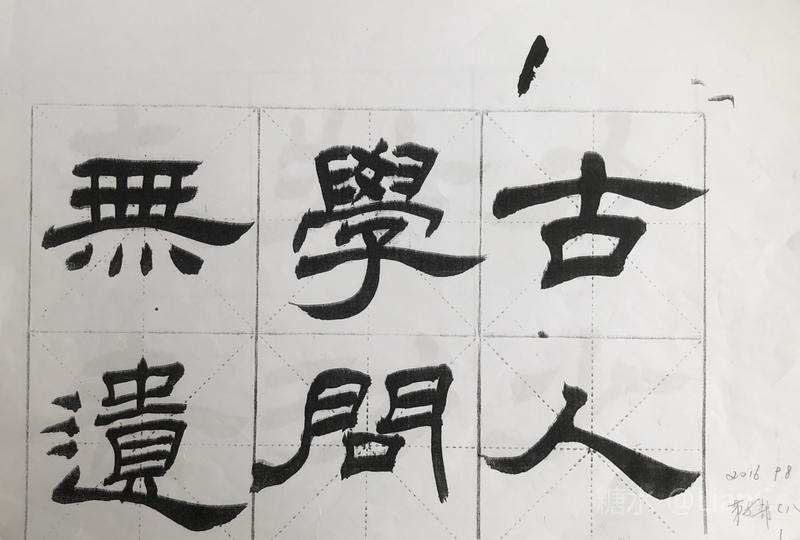 古人
學問
無遺
2016 9 8
糖水